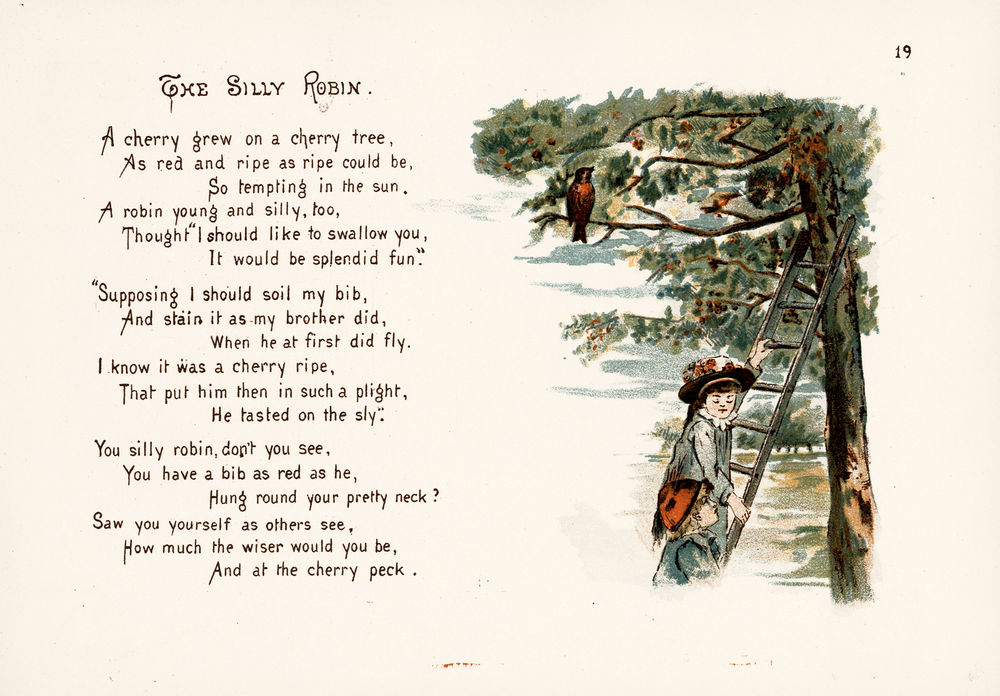 19
THE SILLY ROBIN.
A cherry grew on a cherry tree,
As red and ripe as ripe could be,
So tempting in the sun.
A robin young and silly, too,
Thought "I should like to swallow you,
It would be splendid fun".
"Supposing I should soil my bib,
And stain it as my brother did,
When he at first did fly.
I know it was a cherry ripe,
That put him then in such a plight,
He tasted on the sly".
You silly robin, don't you see,
You have a bib as red as he,
Hung round your pretty neck?
Saw you yourself as others see,
How much the wiser would you be,
And at the cherry peck.